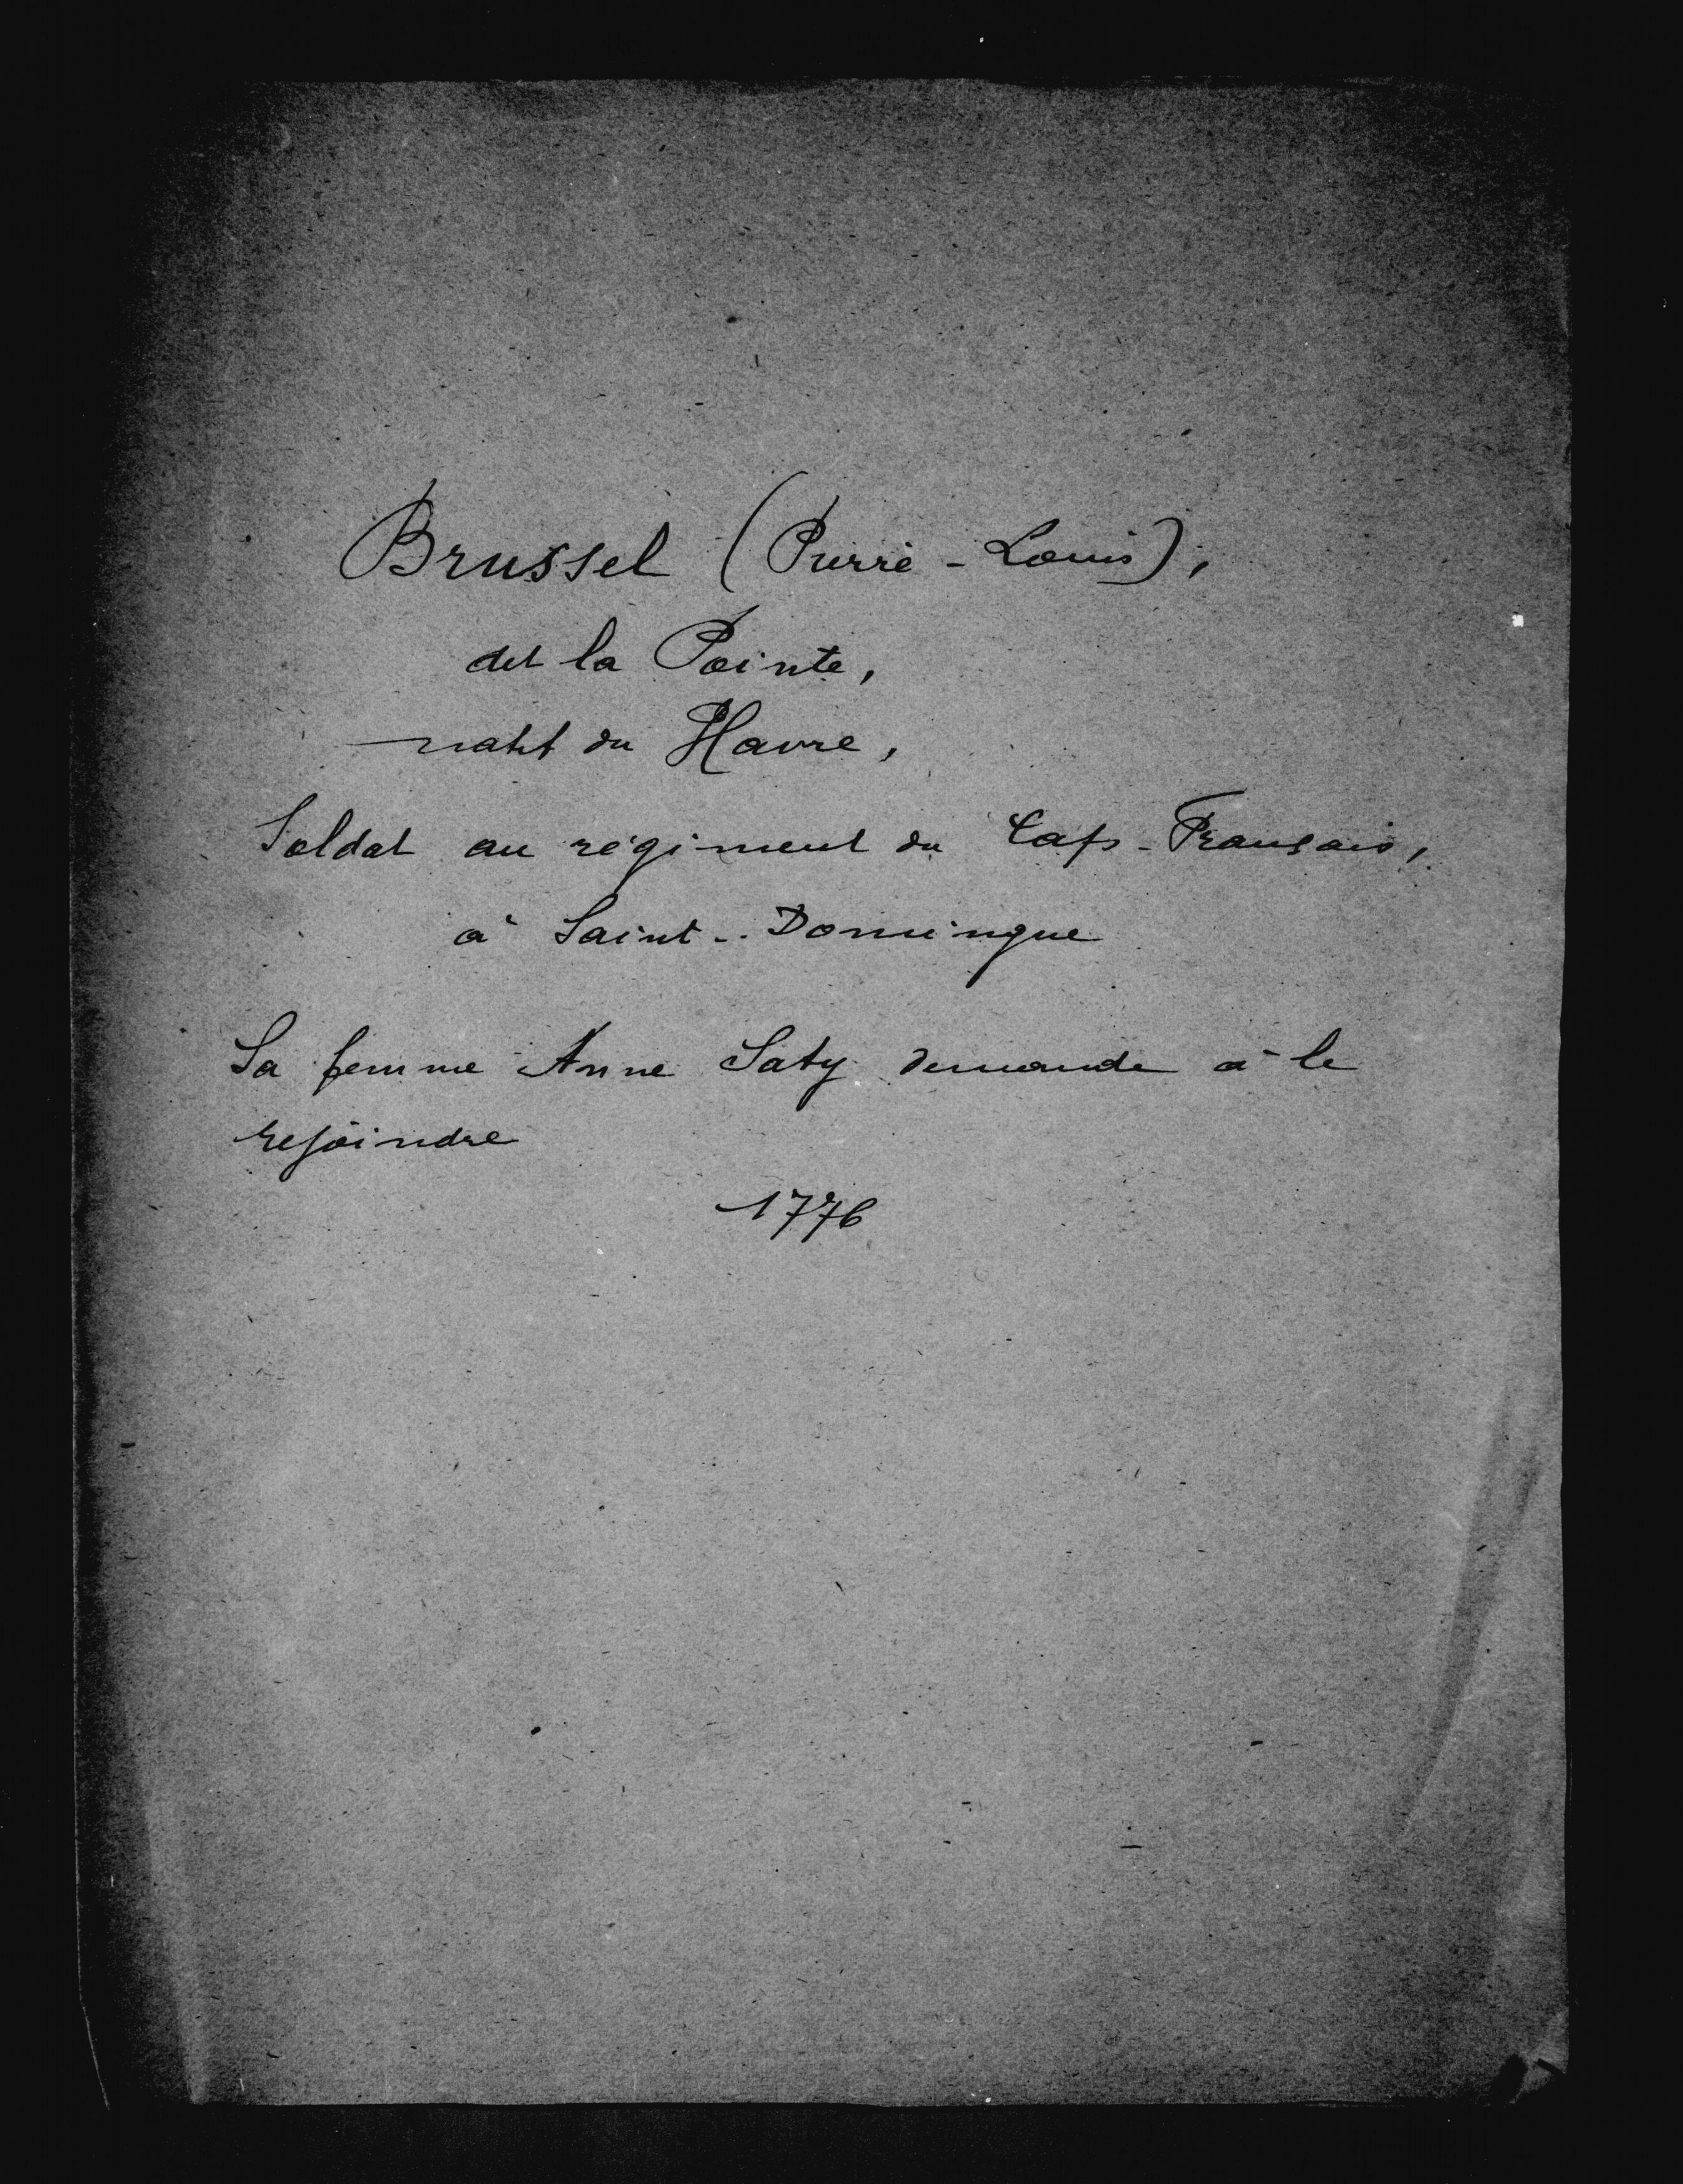 Brussel (Pierre-Louis),
dit la Pointe,
natif du Havre,
Soldat au régiment du Cap-Français,
à Saint-Domingue
Sa femme Anne Saty demande à le
rejoindre
1776